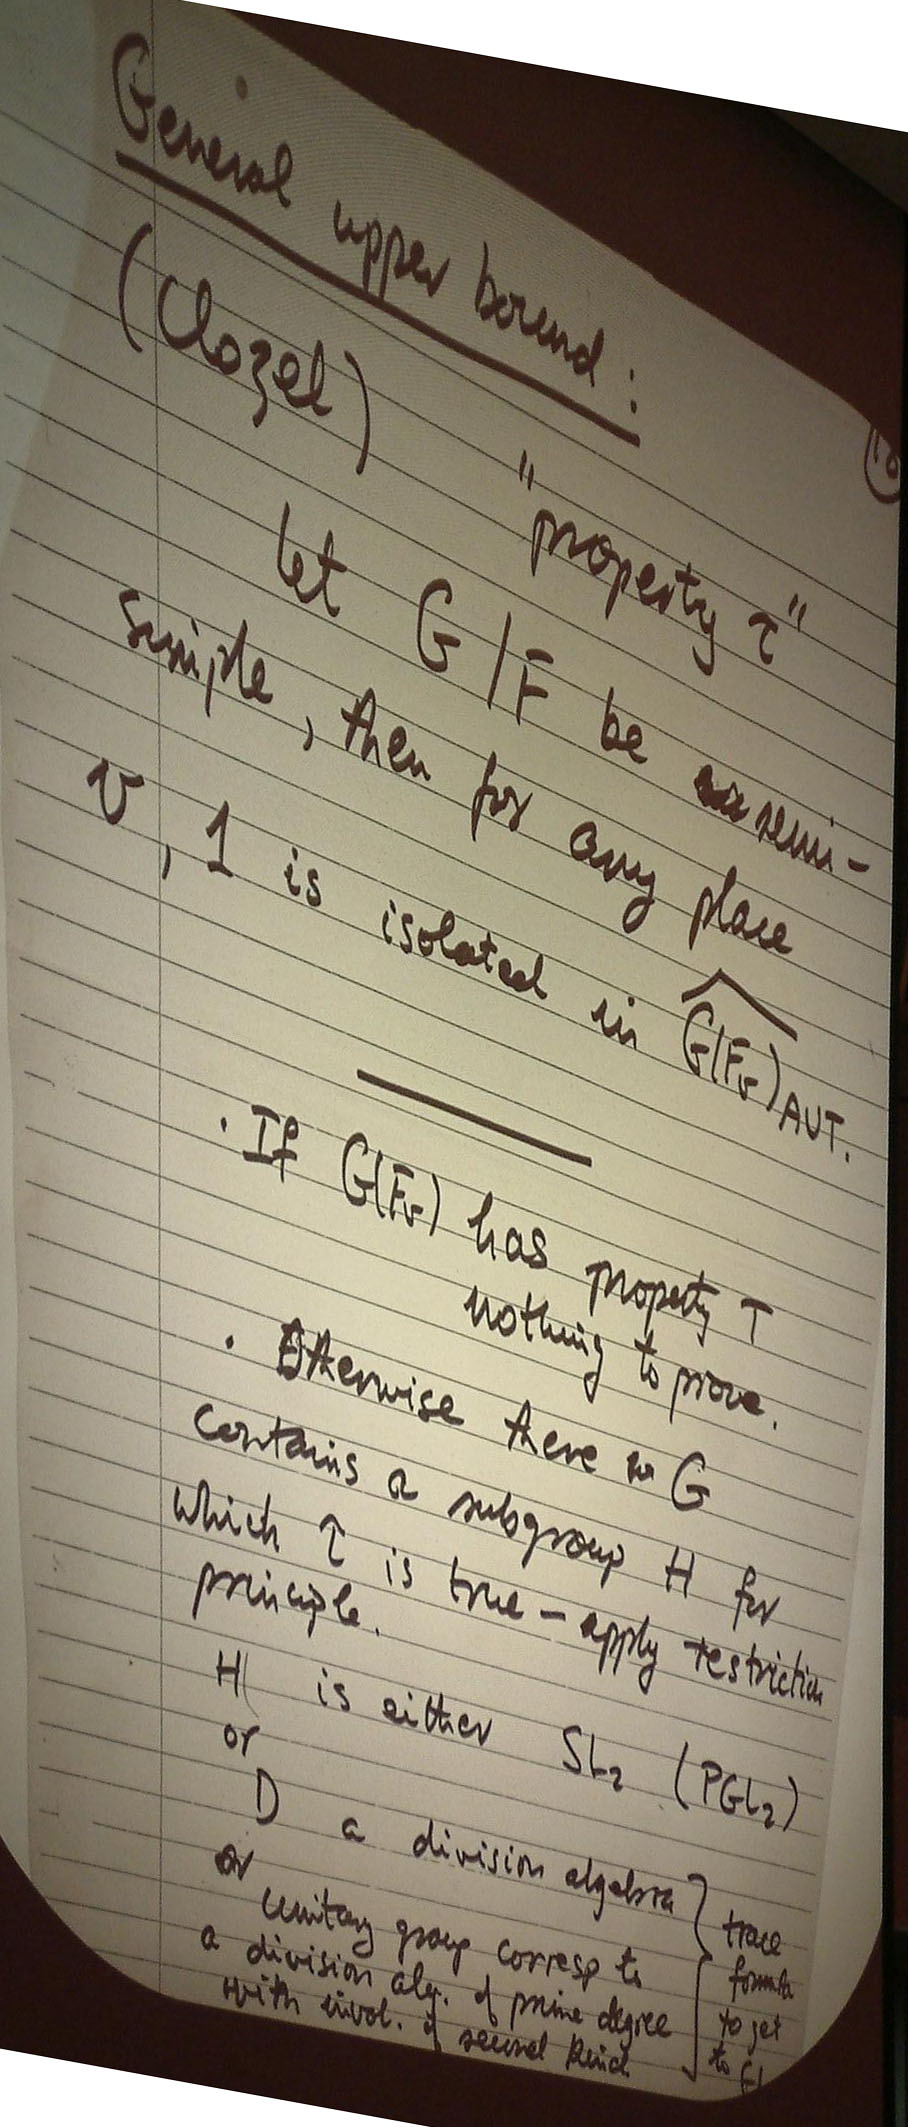 General upper bound:
(Clozel)
10
"property τ"
Let G/F be semi-
simple, then for any place
v, 1 is isolated in G(Fv)^AUT.
· If G(Fv) has property T
nothing to prove.
· Otherwise there G
contains a subgroup H for
which τ is true - apply restriction
principle.
H is either SL2 (PGL2)
or
D a division algebra
or
unitary group corresp to
a division alg. of prime degree
with invol. of second kind
trace
formula
to get
to GL